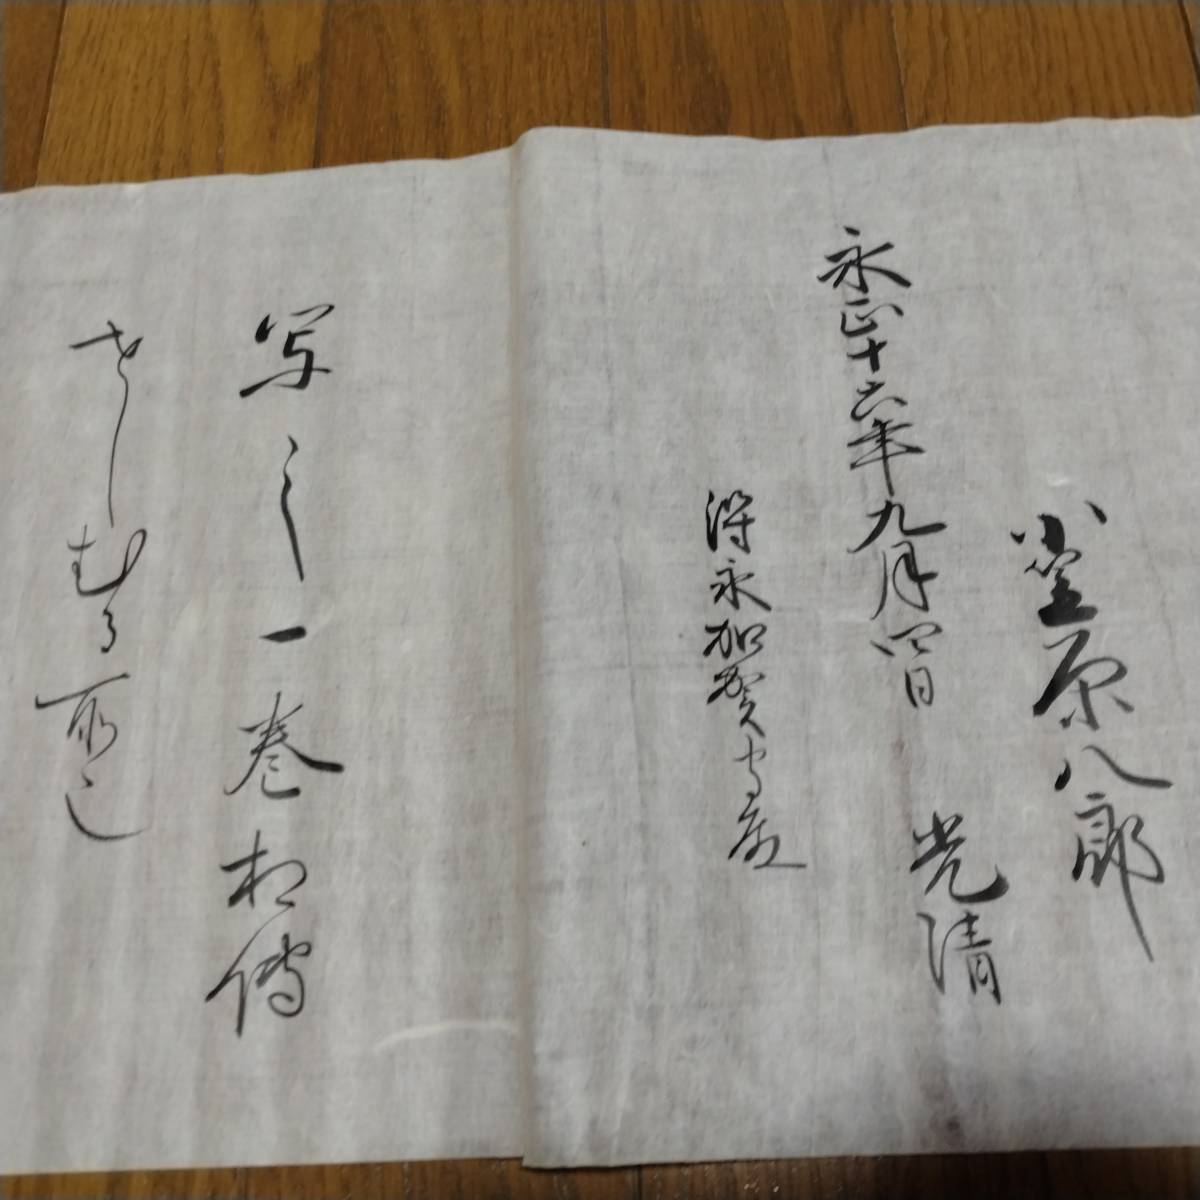 小笠原八郎
光清
永正十六年九月四日
得永加賀守殿
写之一巻相傳
せしむる所也